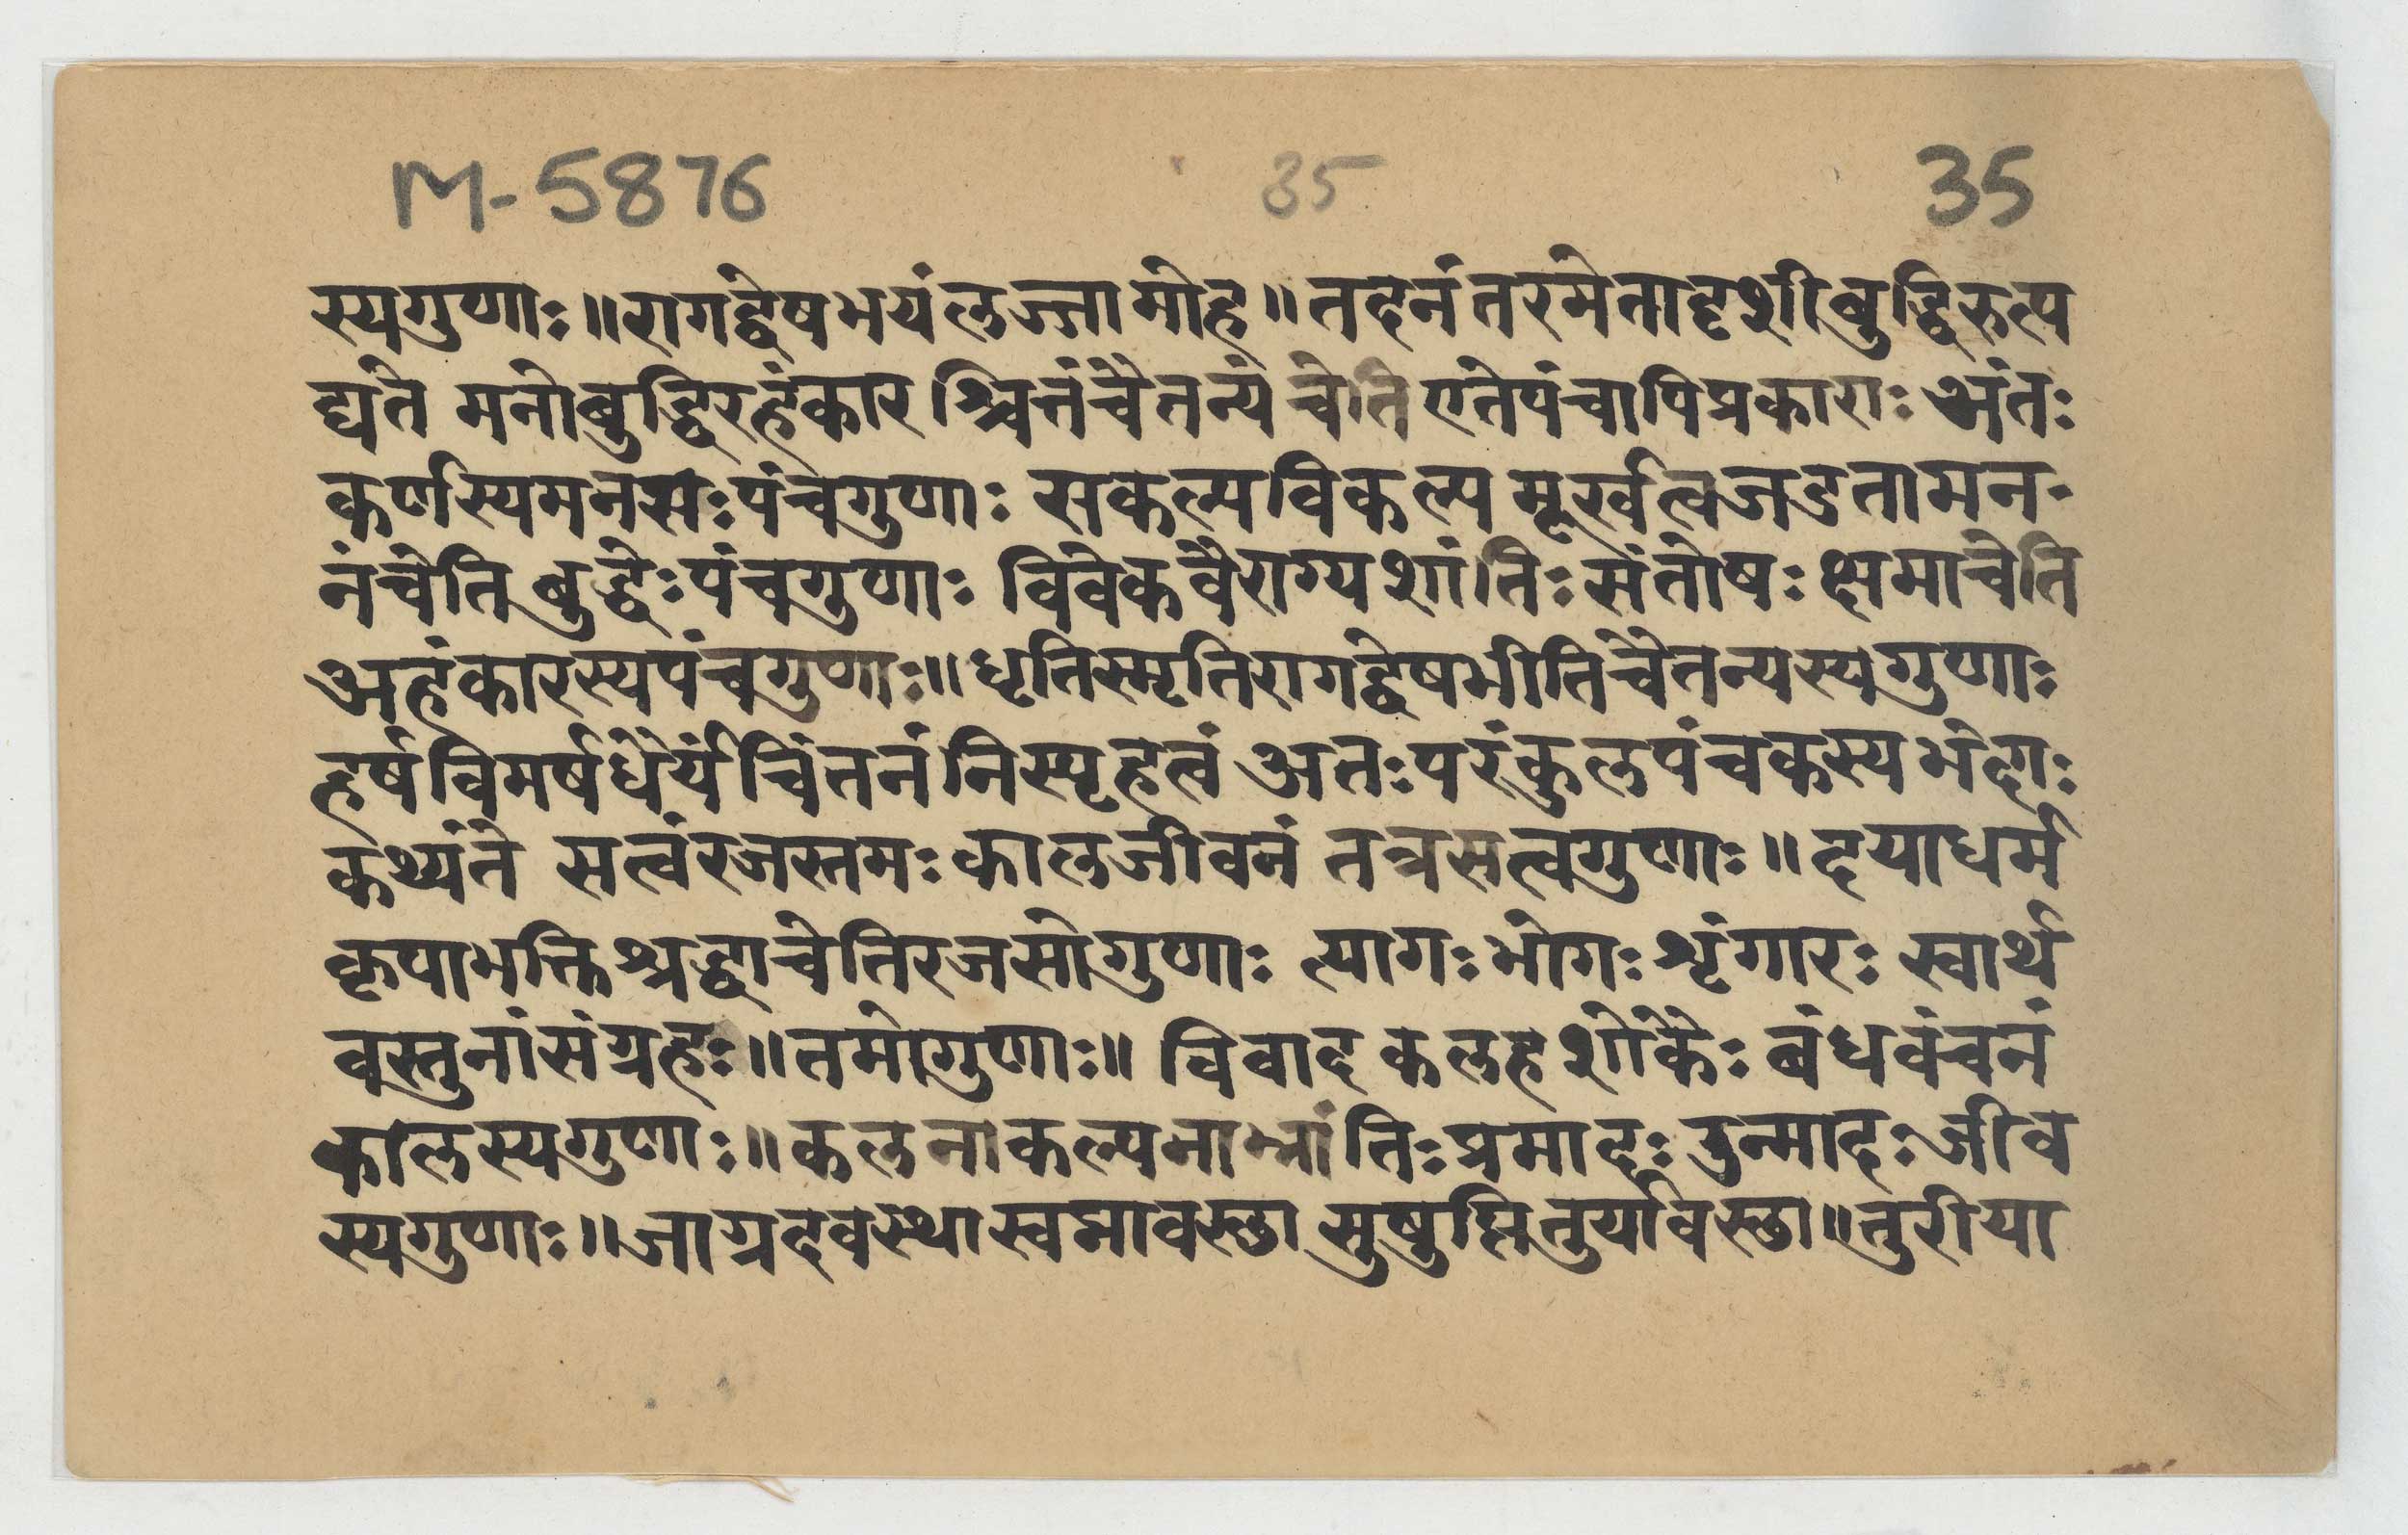 M-5876 35 35
स्यगुणाः॥रागद्वेषभयंलज्जामोह॥तदनंतरमेतादृशीबुद्धिरुत्प
द्यते मनोबुद्धिरहंकार श्चित्तंचैतन्यं चेति एतेपंचापिप्रकाराः अंतः
कर्णस्यमनसःपंचगुणाः सकल्पविकल्प मूर्खत्वजडतामन-
नंचेति बुद्धेःपंचगुणाः विवेकवैराग्यशांतिःसंतोषःक्षमाचेति
अहंकारस्यपंचगुणाः॥धृतिस्मृतिरागद्वेषभीतिचैतन्यस्यगुणाः
हर्षविमर्षधैर्यंचिंतनंनिस्पृहत्वं अतःपरंकुलपंचकस्यभेदाः
कथ्यंते सत्वंरजस्तमःकालजीवनं तत्रसत्वगुणाः॥दयाधर्म
कृपाभक्तिश्रद्धाचेतिरजसोगुणाः त्यागःभोगःशृंगारः स्वार्थ
वस्तुनांसंग्रहः॥तमोगुणाः॥ विवाद कलहशोकैः बंधवंचनं
कालस्यगुणाः॥कलनाकल्पनाभ्रांतिःप्रमादःउन्मादःजीव
स्यगुणाः॥जाग्रदवस्थास्वप्नावस्छा सुषुप्तितुर्यावस्छा॥तुरीया